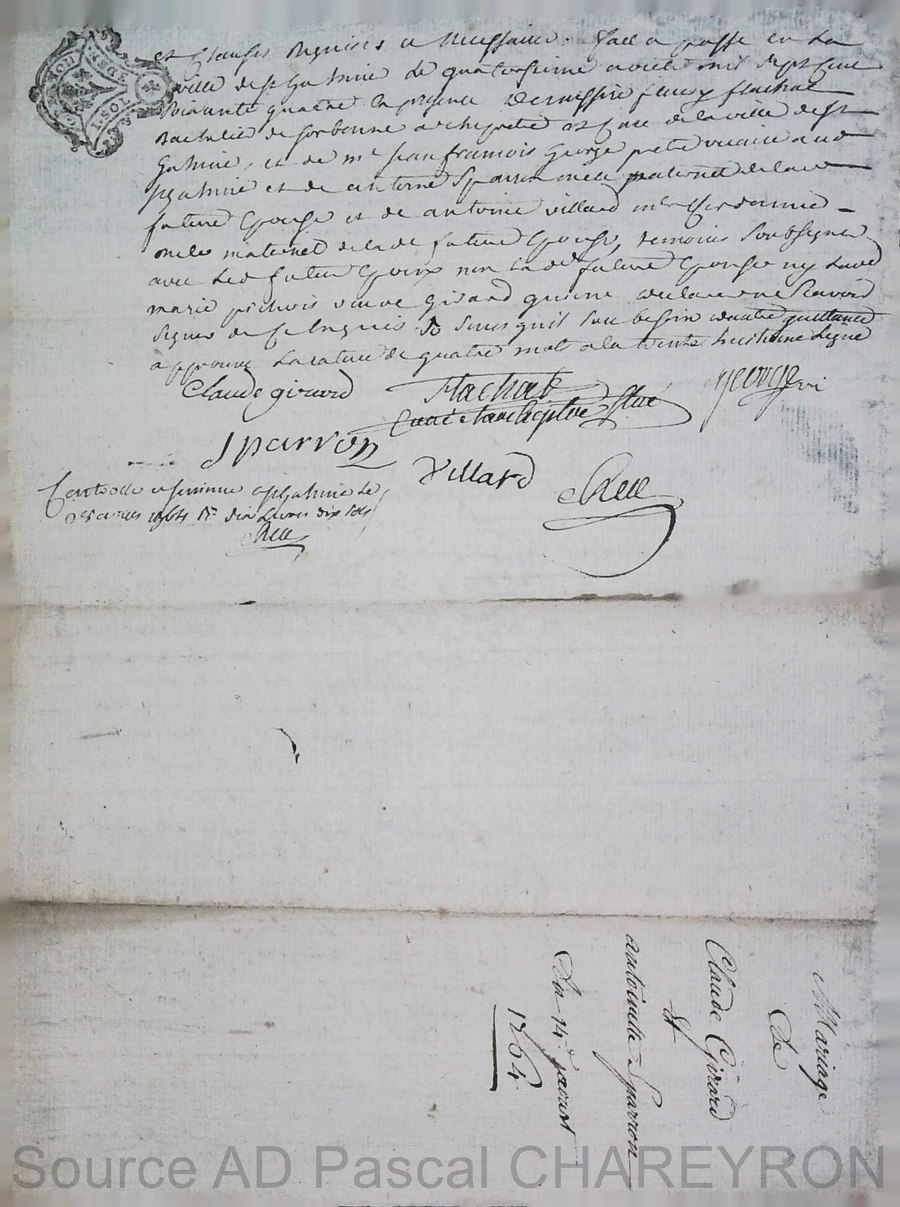 et Clauses Requises et Necessaires. fait et passé en la
ville de st Galmier le quatorzieme avril mil sept cent
soixante quatre en presence De messire fleury flachat
Bachelier de sorbonne archiprêtre et Curé de la ville de st
Galmier, et de mre Jean francois George prêtre vicaire aud
st Galmier et de antoine Sparron oncle paternel de la
future Epouse et de antoine villard mtre Cordonnier
oncle maternel de la de future Epouse, temoins soussignes
avec led futur Epoux non la de future Epouse ny lade
marie pichois veuve Girard qui ont declaré ne sçavoir
signer de ce Enquis
approuvé La rature de quatre mot a la trente huitieme Ligne
Claude girard
Flachat
Curé et archiprêtre
george vi
Sparron
Villard
Controllé et insinué a st Galmier le
1764 Rs dix Livres dix sols
Mariage
De
Claude Girard
&
antoinette Sparron
Du 14e
1764
Source AD Pascal CHAREYRON